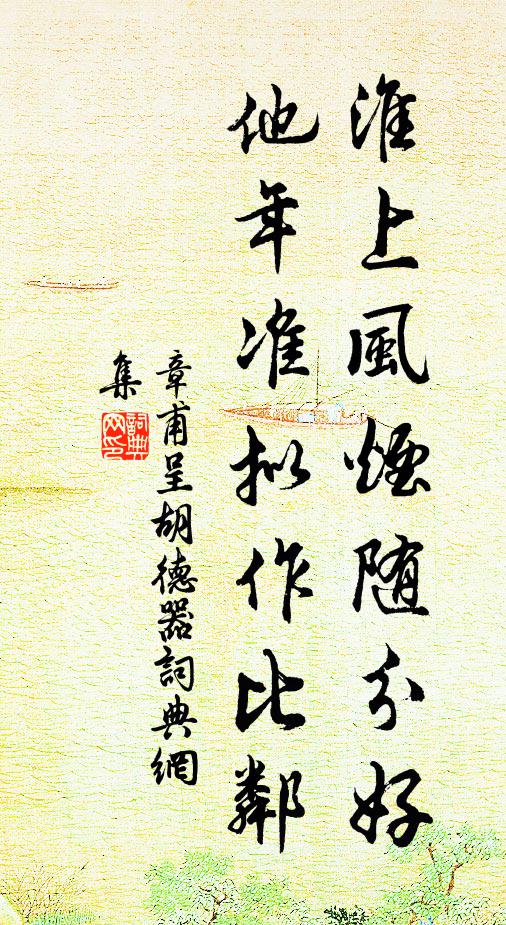 淮上風煙随分好
他年准拟作比鄰
章甫呈胡德器詞典網
集
詞典网印